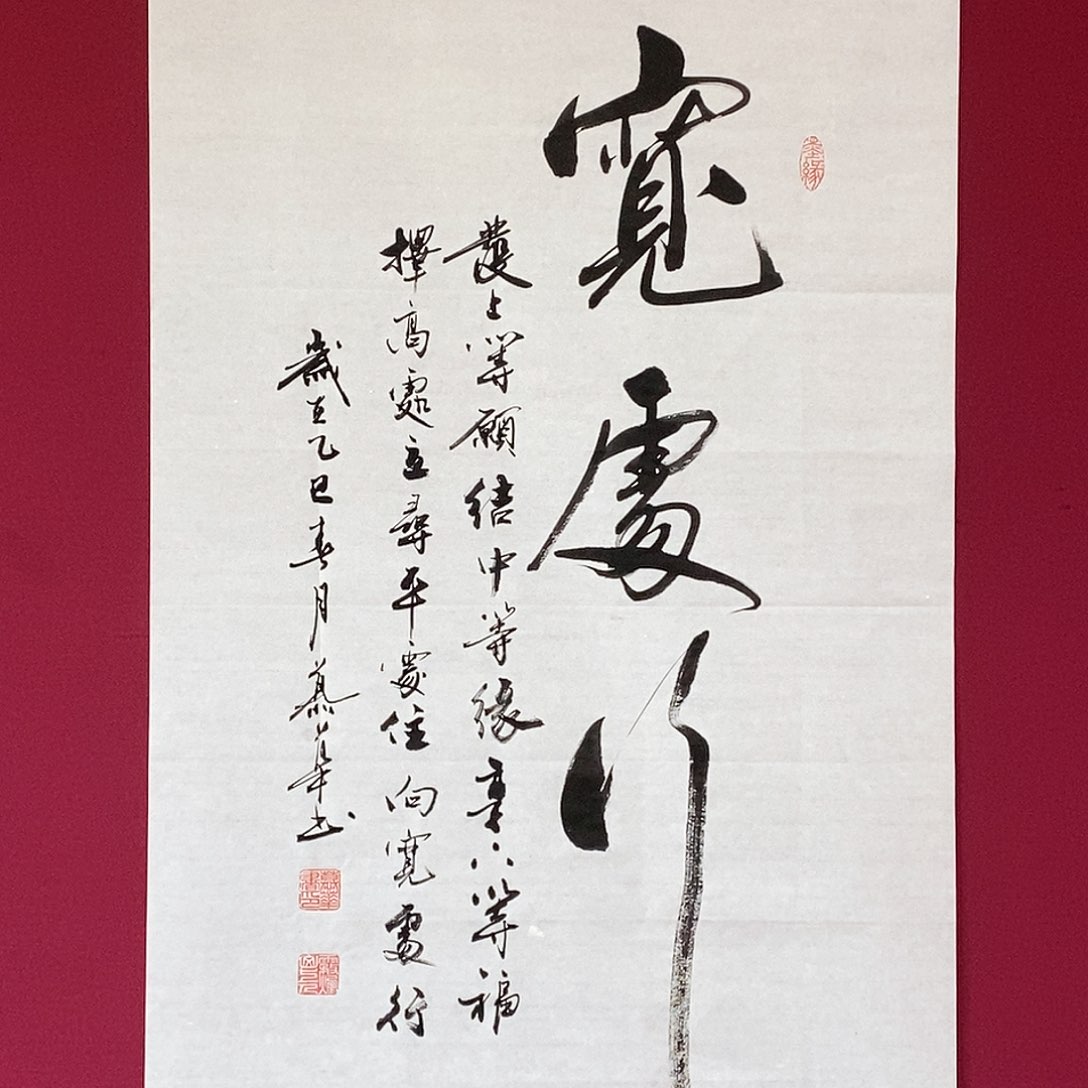 寬處行
墨緣
發上等願結中等緣享下等福
擇高處立尋平處住向寬處行
歲在乙巳春月慕華書